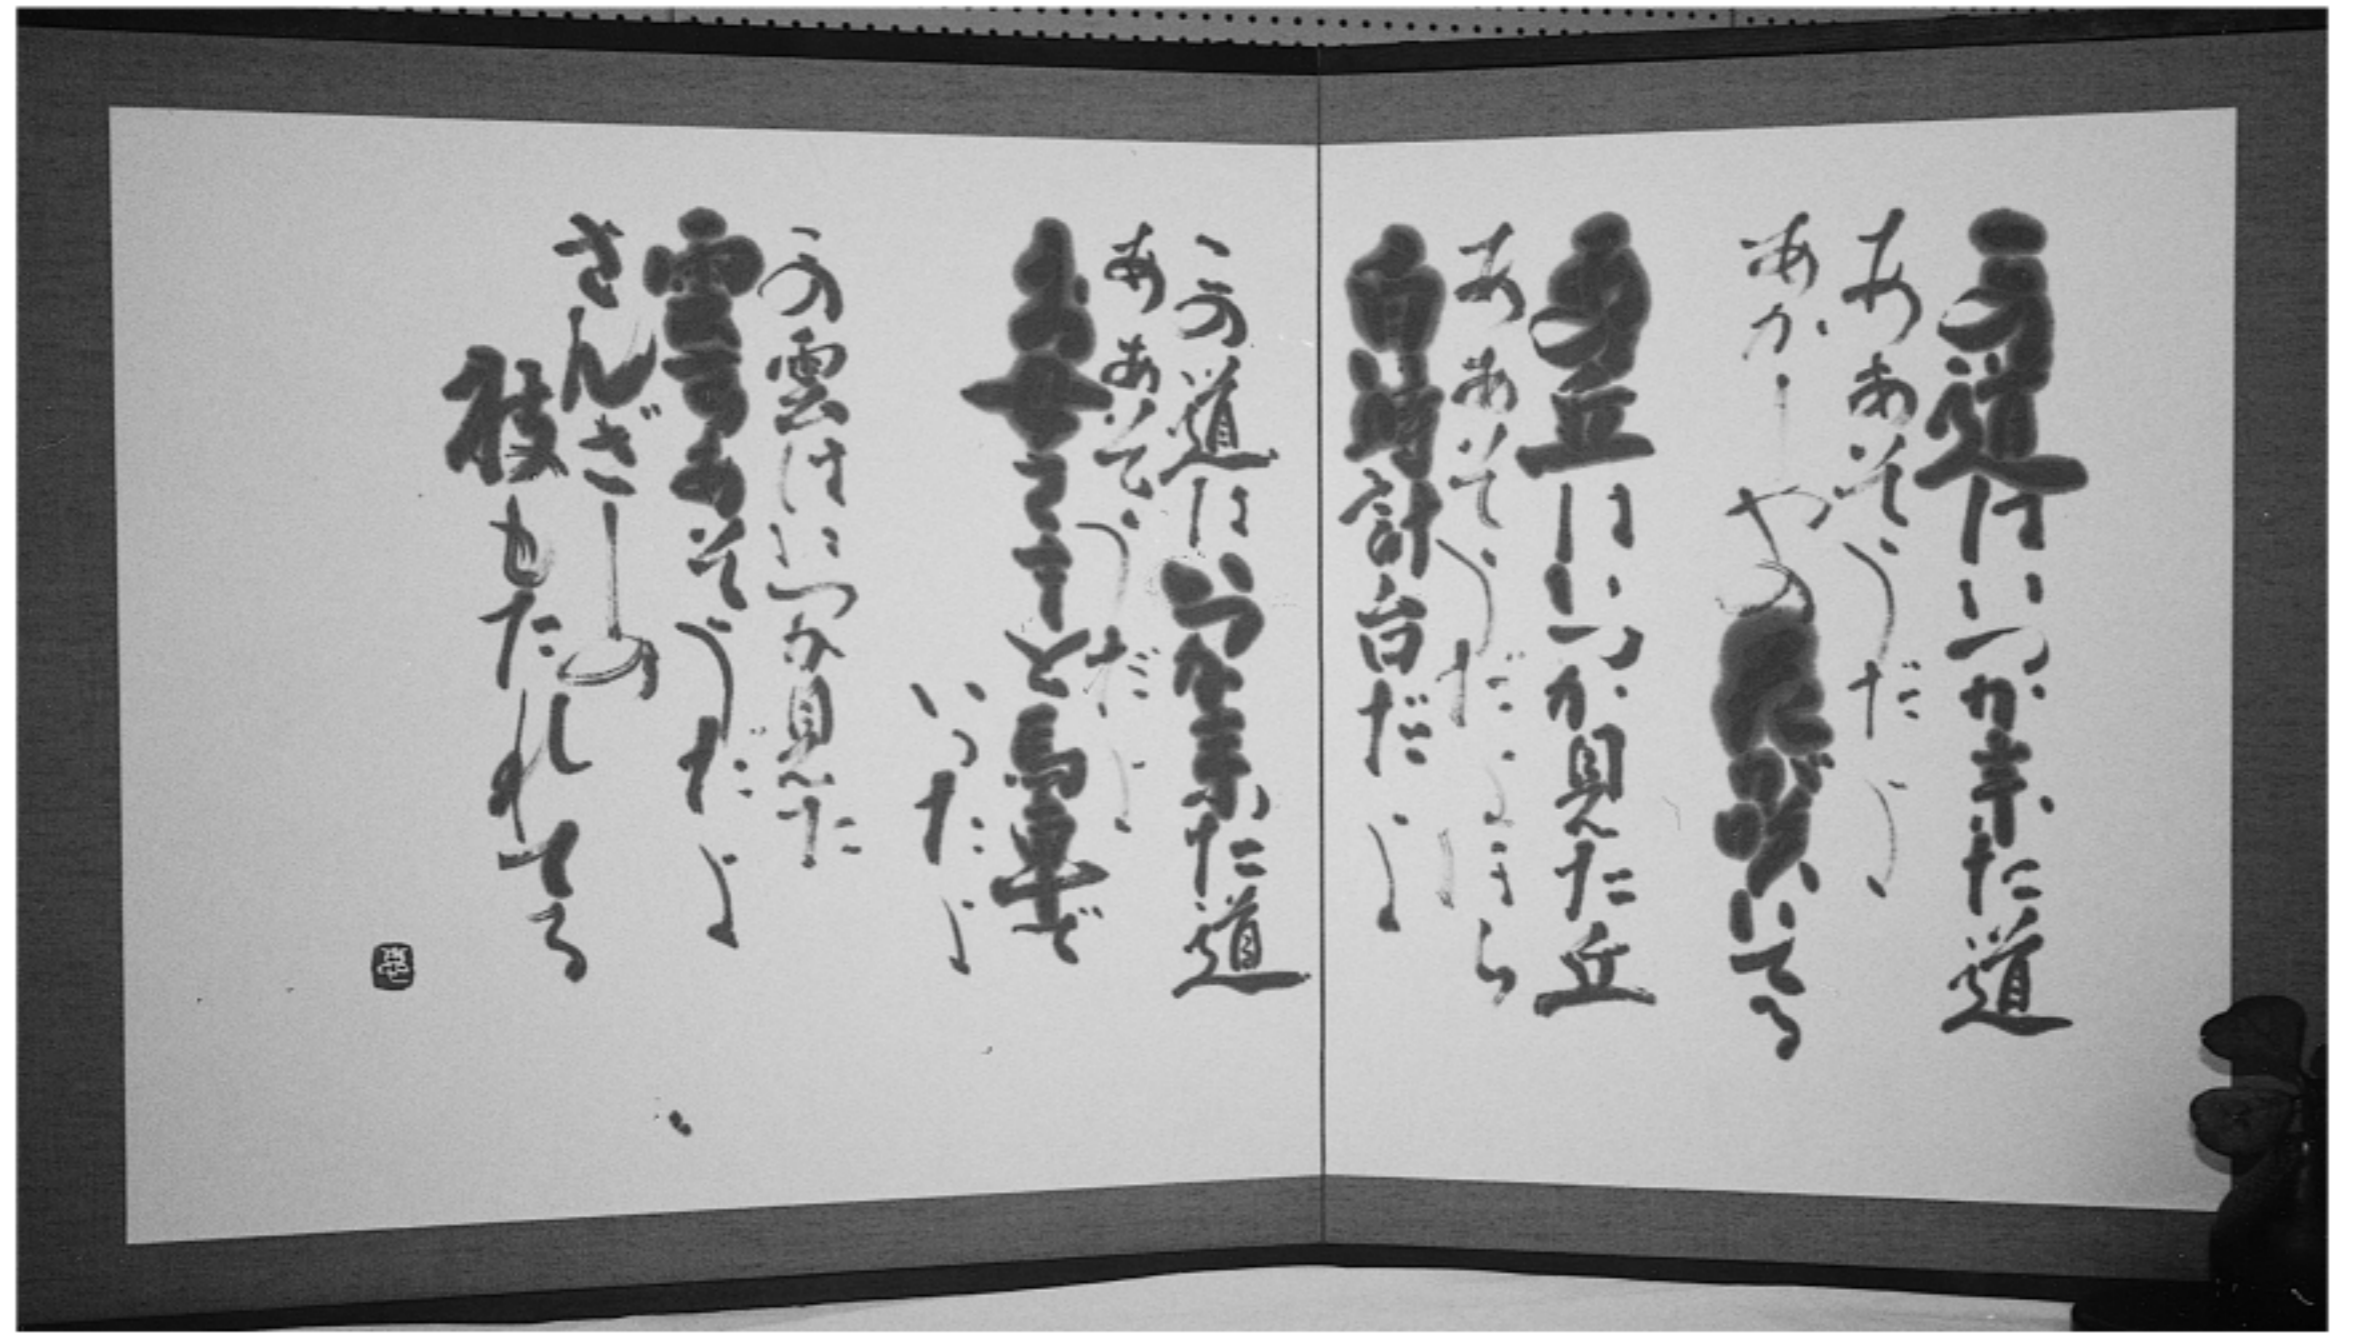 この道はいつか来た道
ああそうだよ
あかしやの花が咲いてる
あの丘はいつか見た丘
ああそうだよほら
白い時計台だよ
この道はいつか来た道
ああそうだよ
お母さまと馬車で
いったよ
この雲はいつか見た
雲ああそうだよ
さんざしの
枝もたれてる